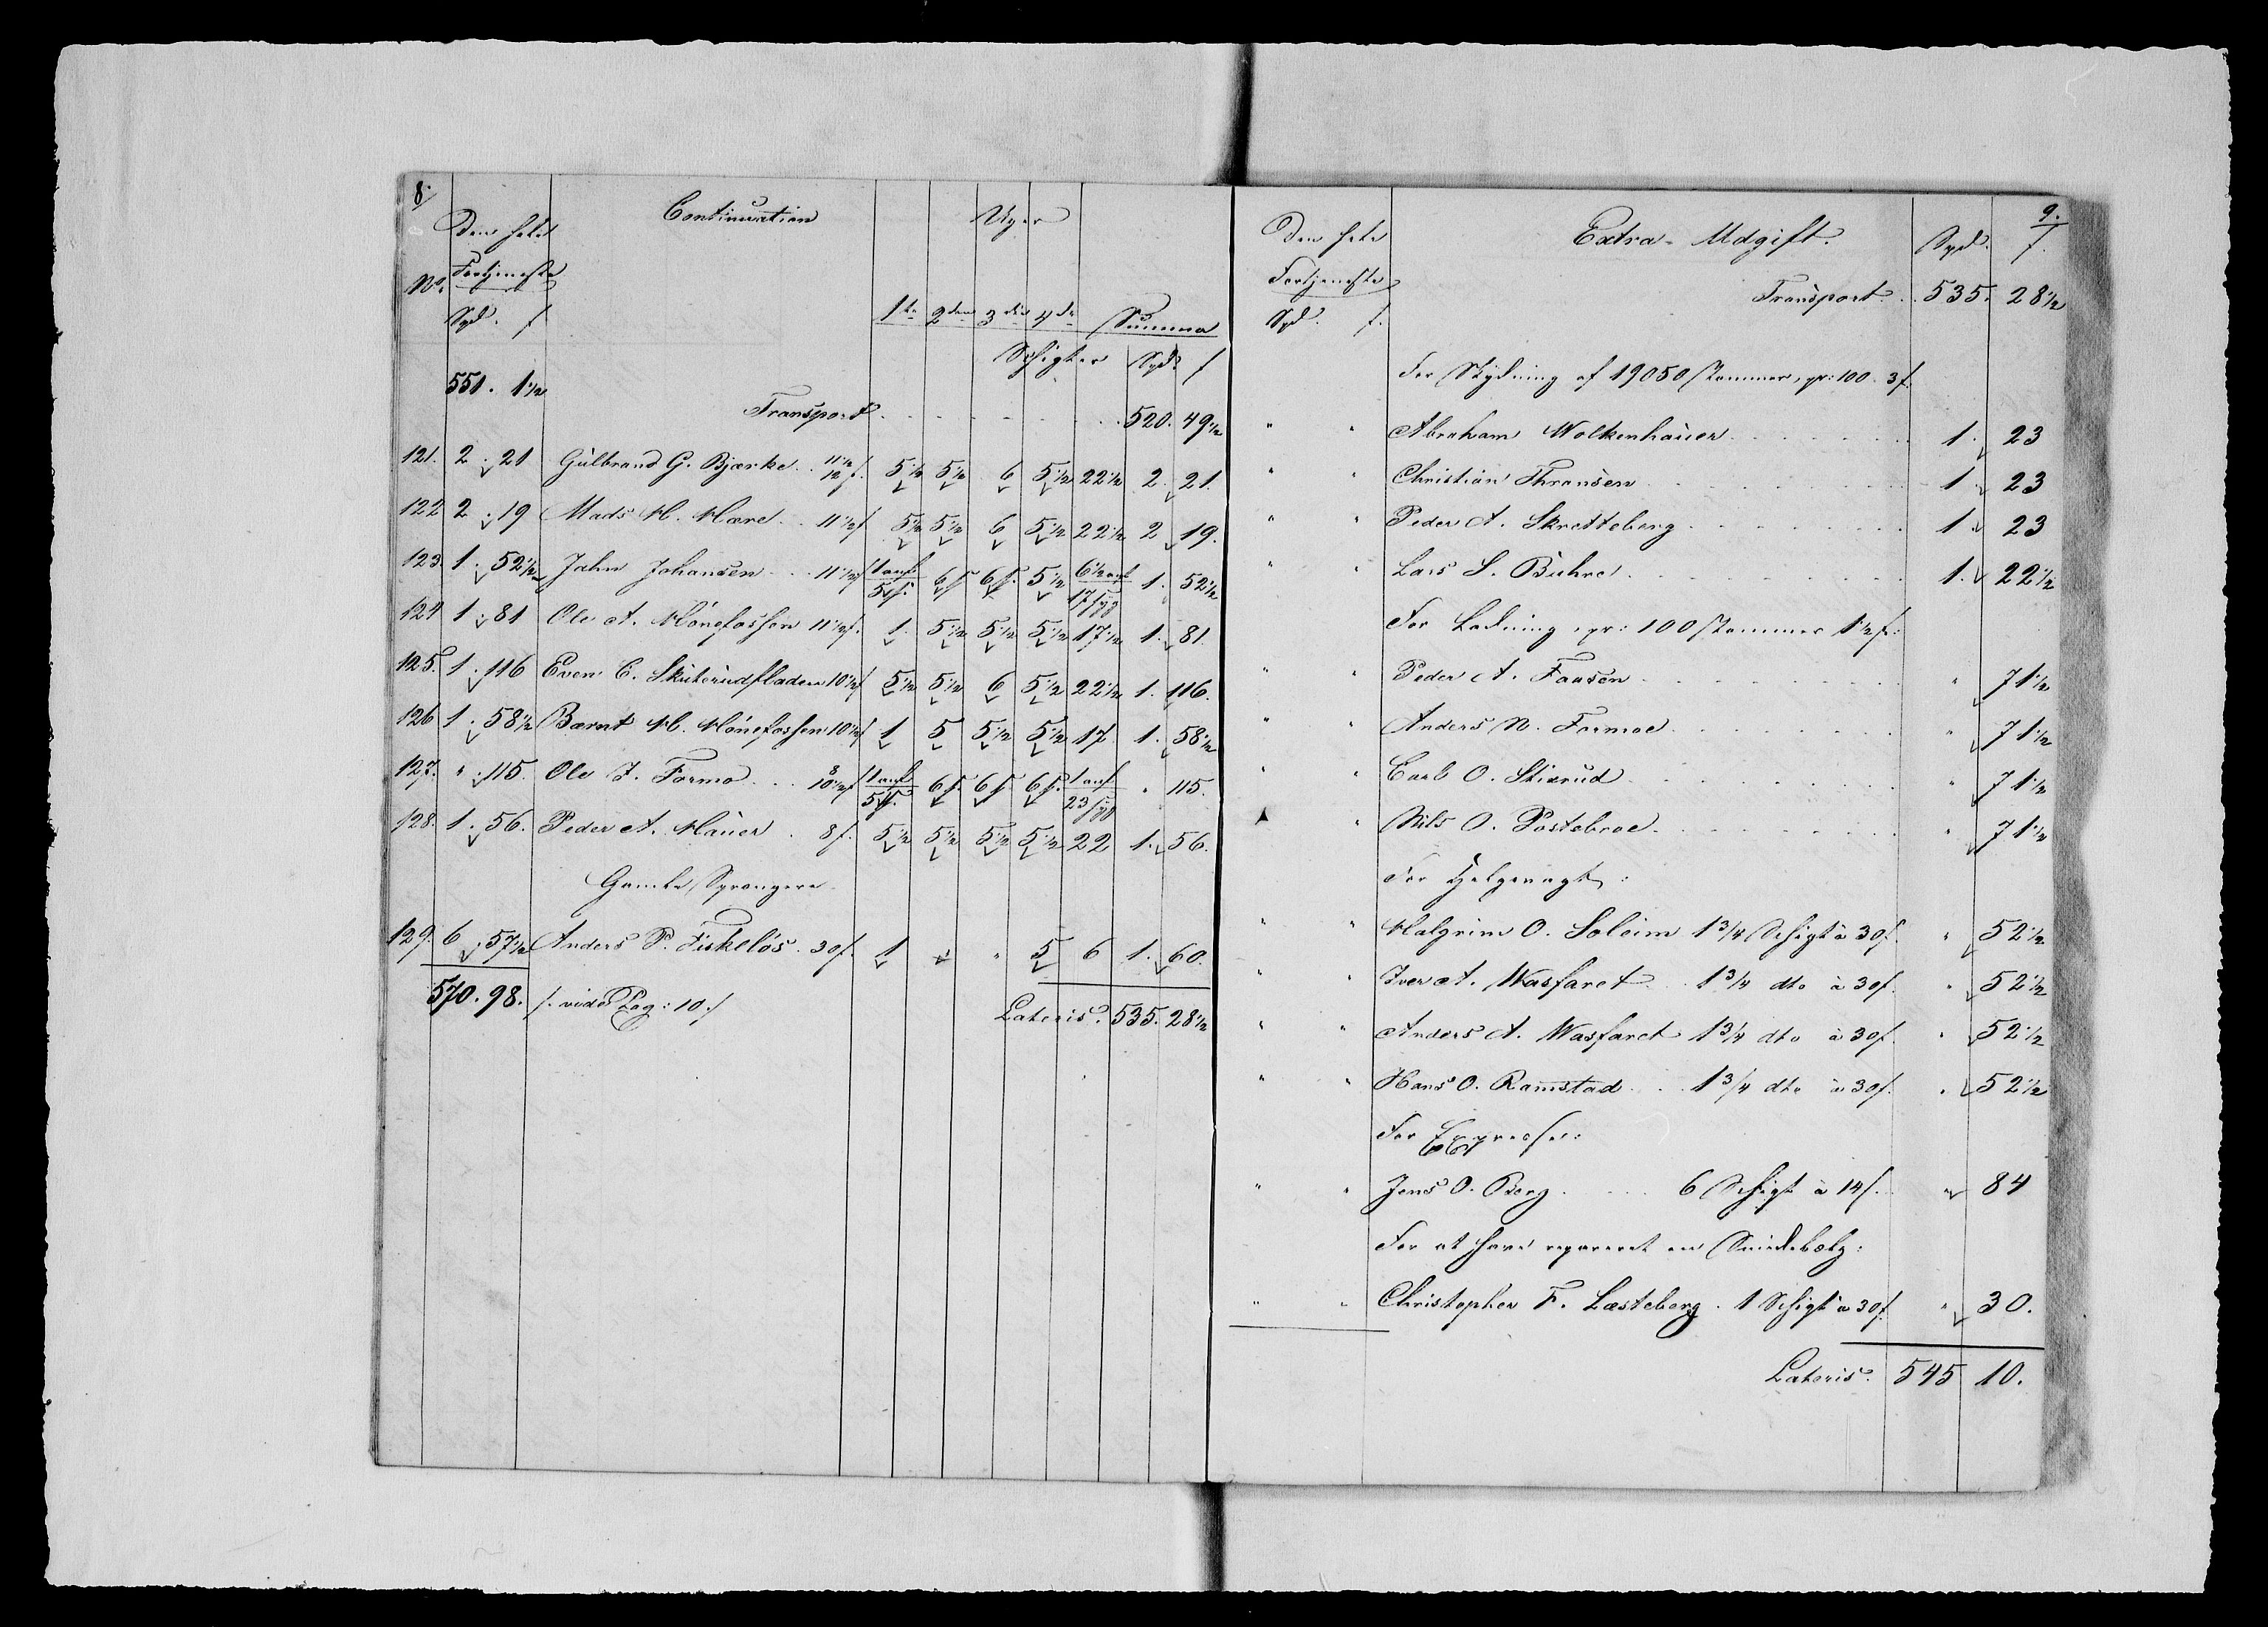 8.
Den hele Continuation Uger
No. Fortjeneste
1te 2den 3die 4de Summa
Spd. s
Schigter Spd. s
551. 1 1/2
Transport 520. 49 1/2
121. 2. 21 Gulbrand G. Bjerke 11 1/2 12 s. 5 1/2 5 1/2 6 5 1/2 22 1/2 2. 21.
122 2. 19 Mads H. Hære 11 1/2 s 5 1/2 5 1/2 6 5 1/2 22 1/2 2 19.
123. 1. 52 1/2 Jahn Johansen 11 1/2 s 6 s 6 s. 5 1/2 1. 52 1/2
124 1. 81 Ole A. Hönefossen 11 1/2 s. 1. 5 1/2 5 1/2 5 1/2 17 1/2 1. 81.
125. 1. 116 Even C. Skuterudfladen 10 1/2 s 5 1/2 5 1/2 6 5 1/2 22 1/2 1. 116.
126 1. 58 1/2 Bærnt H. Hönefossen 10 1/2 s 1 5 5 1/2 5 1/2 17 1. 58 1/2
127. " 115. Ole J. Formo 8 10 1/2 s 6 s. 6 s 6 s. " 115.
128. 1. 56. Peder A. Hauer 8 s. 5 1/2 5 1/2 5 1/2 5 1/2 22 1. 56.
Gamle Sprængere
129. 6. 57 1/2 Anders P. Fiskelös 30 s. 1 " " 5 6 1. 60.
570. 98. /. vide Pag: 10 ./ Lateris. 535. 28 1/2
9.
Den hele Extra-Udgift. Spd. s.
Fortjeneste
Transport 535. 28 1/2
Spd. s.
For Skydning af 19050 Stammer, pr: 100. 3 s.
" " Abraham Wolkenhauer 1. 23
" " Christian Thronsen 1. 23
" " Peder A. Skretteberg 1. 23
" " Lars S. Buhre 1. 22 1/2
For Ladning, pr: 100 Stammer 1 1/2 s:
" " Peder A. Fausen " 71 1/2
" " Anders N. Formoe " 71 1/2
" " Carl O. Stixrud " 71 1/2
" " Nils O. Postebroe " 71 1/2
For Helgevagt:
" " Halgrim O. Soleim 1 3/4 Schigt à 30 s. " 52 1/2
" " Iver A. Wasfaret 1 3/4 dto à 30 s. " 52 1/2
" " Anders A. Wasfaret 1 3/4 dto à 30 s. " 52 1/2
" " Hans O. Ramstad 1 3/4 dto à 30 s. " 52 1/2
For Expresse:
" " Jens O. Berg 6 Schigt à 14 s. " 84
For at have repareret en Smidebælg:
" " Christopher F. Læsteberg. 1 Schigt à 30 s. " 30.
Lateris. 545 10.